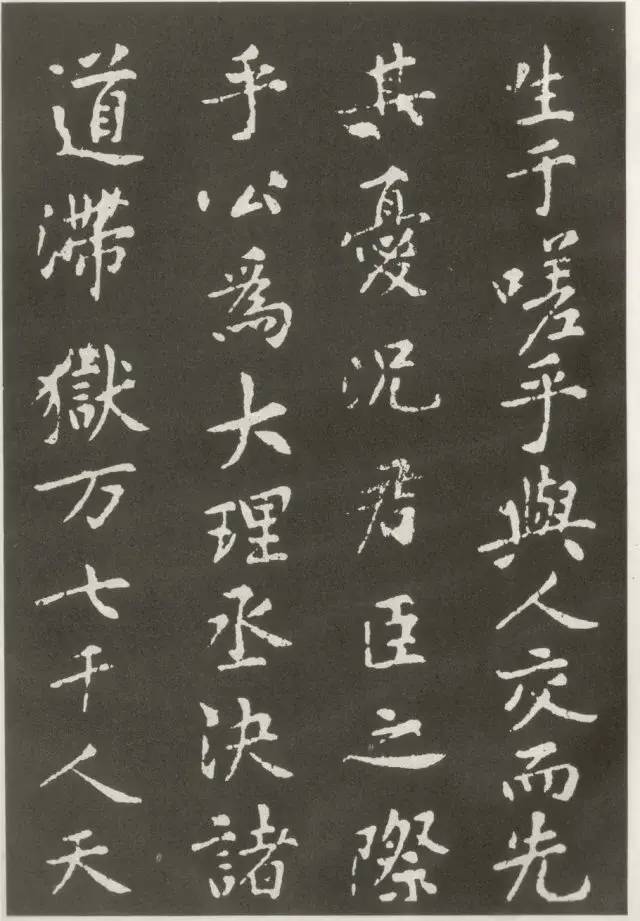 生于嗟乎與人交而先
其憂況君臣之際
乎公為大理丞決諸
道滯獄万七千人天